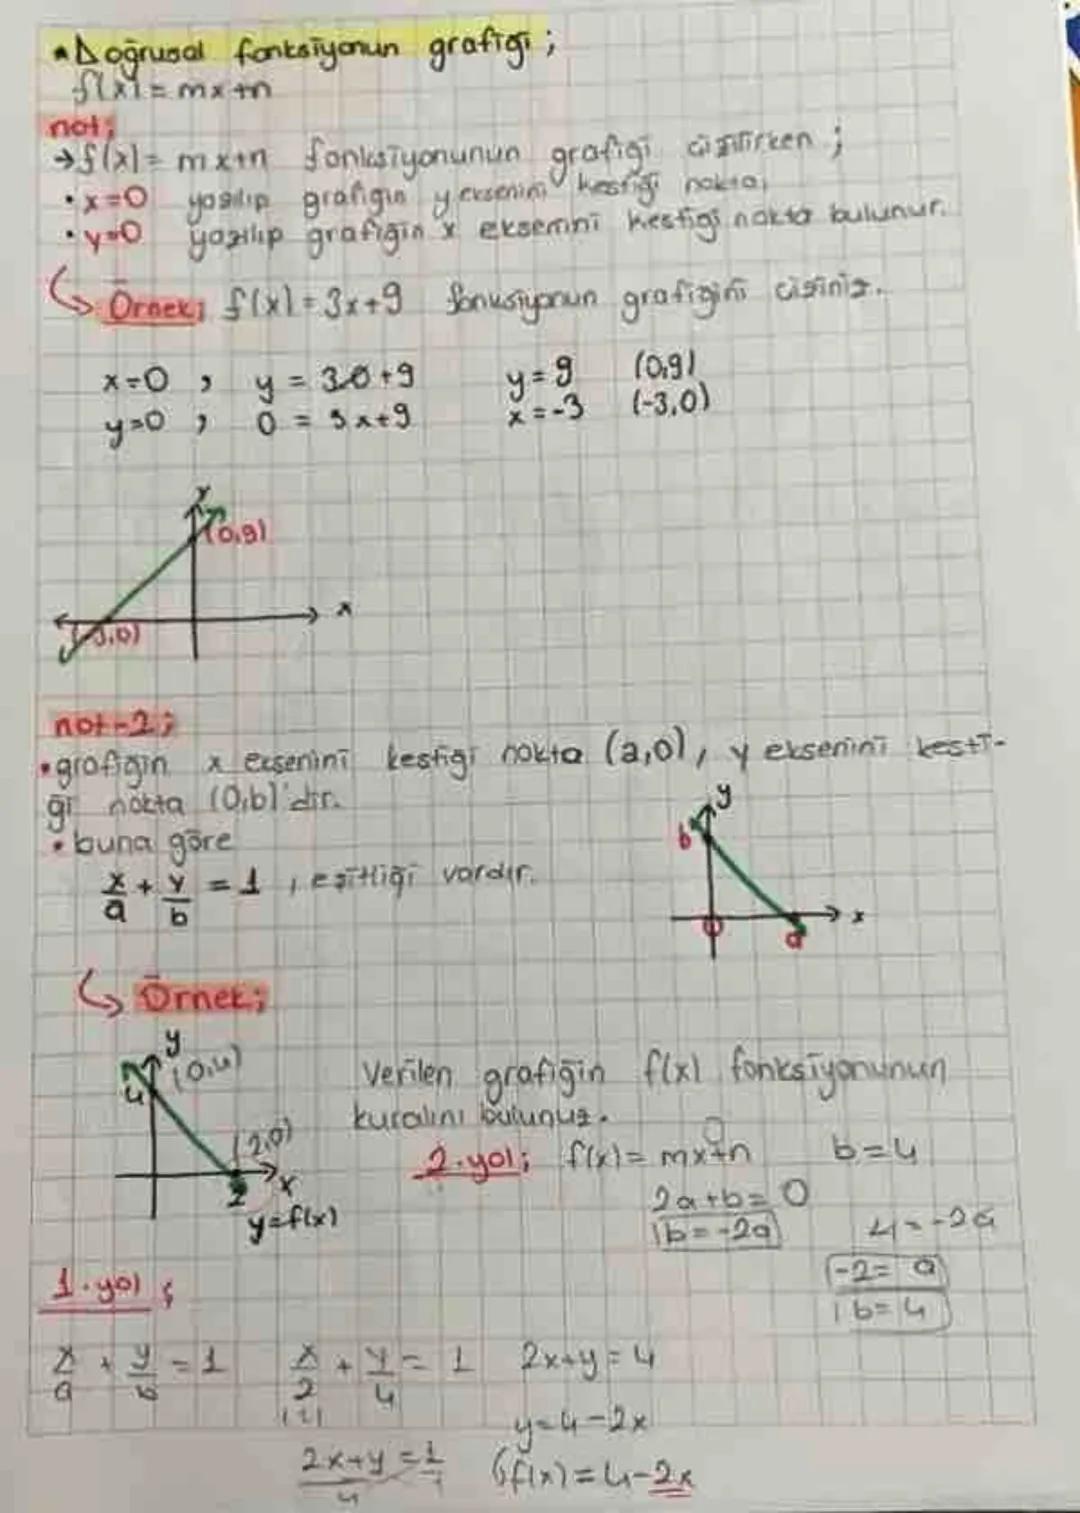 Doğrusal fonksiyonun grafiği;
f(x) = mx+n
not;
→ f(x) = mx+n fonksiyonunun grafiği çizilirken;
• x=0 yazılıp grafiğin y eksenini kestiği nokta,
• y=0 yazılıp grafiğin x eksenini kestiği nokta bulunur.
Örnek; f(x) = 3x+9 fonksiyonun grafiğini çiziniz.
x=0 , y = 3.0+9 y=9 (0,9)
y=0 , 0 = 3x+9 x=-3 (-3,0)
y
(0,9)
x
(-3,0)
not-2;
• grafiğin x eksenini kestiği nokta (a,0), y eksenini kesti-
ği nokta (0,b)'dir.
• buna göre
x/a + y/b = 1 , eşitliği vardır.
y
b
x
0
a
Örnek;
y
(0,4)
4
(2,0)
2
x
y=f(x)
Verilen grafiğin f(x) fonksiyonunun
kuralını bulunuz.
2.yol; f(x) = mx+n b=4
2a+b=0
b=-2a 4=-2a
-2=a
b=4
1.yol;
x/a + y/b = 1 x/2 + y/4 = 1 2x+y=4
(2)
y=4-2x
2x+y/4 = 1/1 f(x)=4-2x